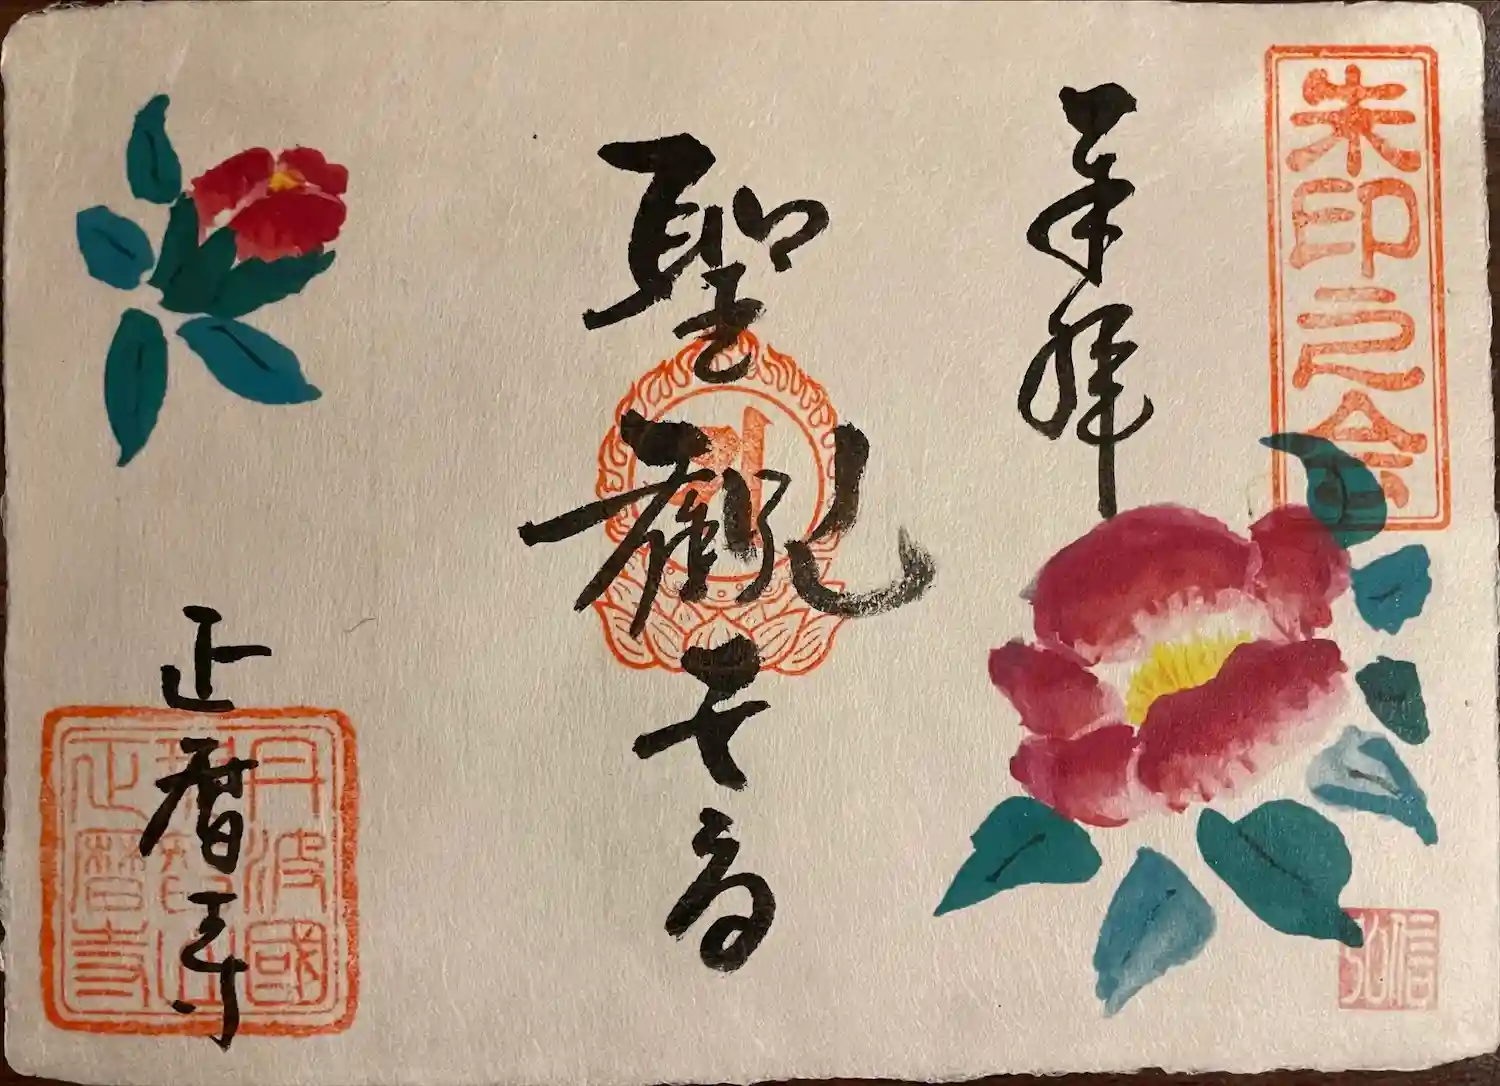 朱印之会
奉拝
聖観世音
正暦寺
丹波國
那智山
正暦寺
信弘